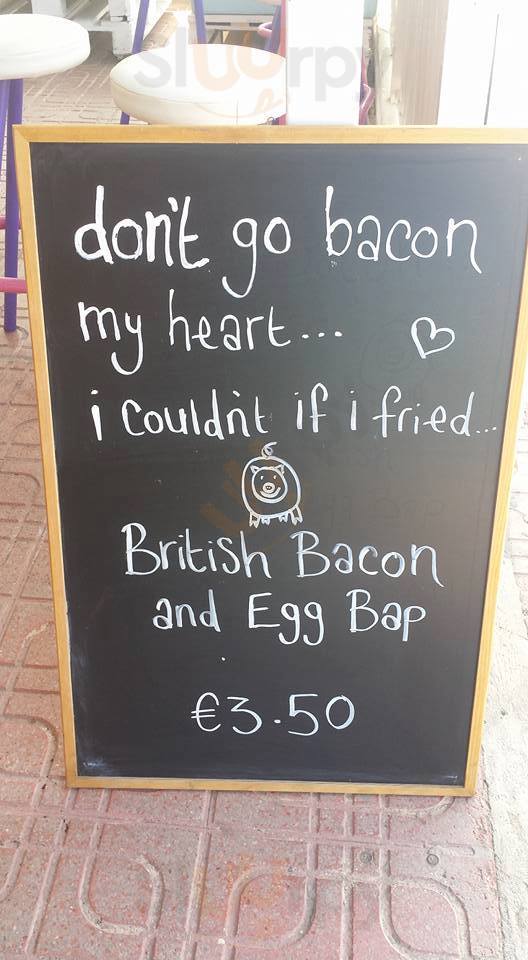 sluurpy
don't go bacon
my heart...
i couldn't if i fried...
British Bacon
and Egg Bap
€3.50